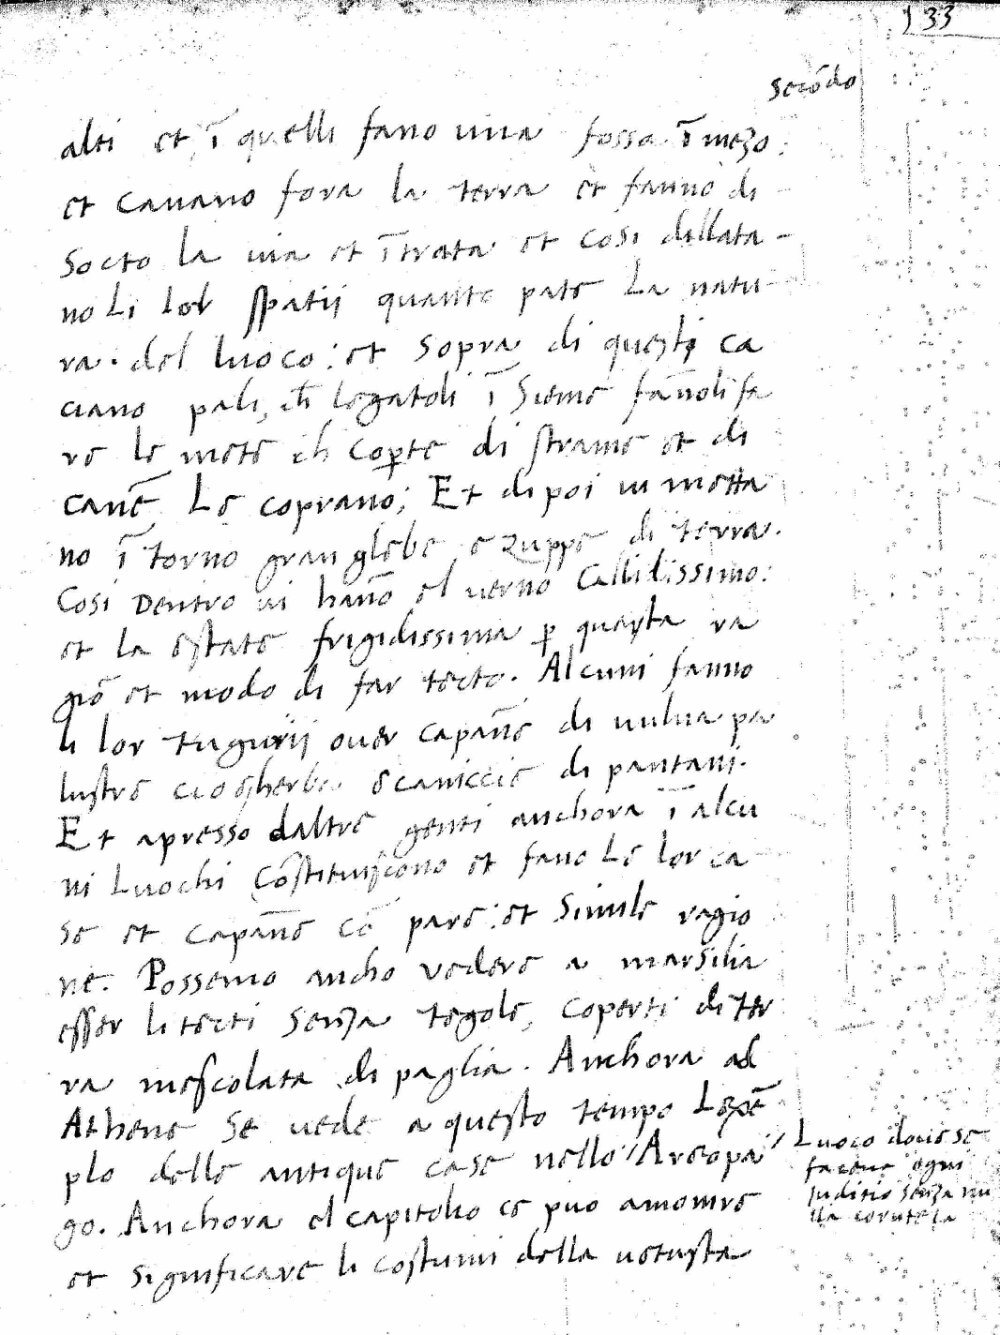 133
secōdo
alti et ī quelli fano una fossa ī mezo:
et cavano fora la terra et fanno di
socto la via et ītrata et cosi dillata-
no li lor spatij quanto pate la natu-
ra. del luoco: et sopra di questi ca
ciano pali, ch legatoli ī sieme fānoli fa
re le mete ch coperte di strame et di
canē Le coprano; Et dipoi vi metta
no ī torno gran glebe e zuppe di terra.
Cosi Dentro vi hanō el verno Callidissimo:
et la estate frigidissima p questa ra
giō et modo di far tecto. Alcuni fanno
li lor tugurij over capāne di vulva pa
lustre cioe herbe e caniccie di pantani.
Et apresso daltre genti anchora ī alcu
ni Luochi Cōstituiscono et fano Le lor ca
se et capāne cō pare: et simile ragio
ne. Possemo ancho vedere a marsilia
esser li tecti senza tegole, coperti di ter
ra mescolata di paglia. Anchora ad
Athene se vede a questo tempo Lozē
plo delle antique case nello Areopa
go. Anchora el capitolio ce puo amonire
et significare li costumi della vetusta
Luoco dove se
faceva ogni
juditio senza nu
lla corutela